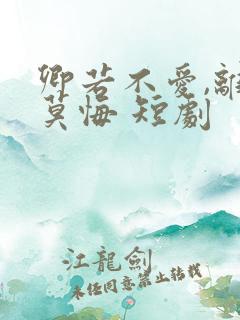 卿若不愛,離
莫悔 短劇
江龍劍
未经同意禁止转载